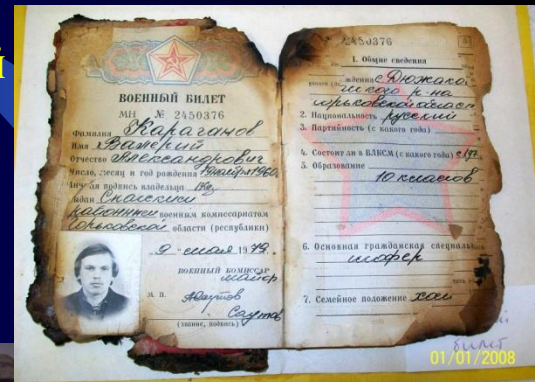 й
ВОЕННЫЙ БИЛЕТ
МН № 2450376
Фамилия Караганов
Имя Валерий
Отчество Александрович
Число, месяц и год рождения 1960
подпись владельца
Выдан Спасским
районным военным комиссариатом
Горьковской области (республики)
9 мая 1979
ВОЕННЫЙ КОМИССАР
майор
М. П.
Саутов
(звание, подпись)
2450376
1. Общие сведения
ждения с. Дюжако
р-на
горьковской област
2. Национальность русский
3. Партийность (с какого года)
4. Состоит ли в ВЛКСМ (с какого года) с
5. Образование
10 классов
6. Основная гражданская специаль
шофер
7. Семейное положение хол
билет
01/01/2008